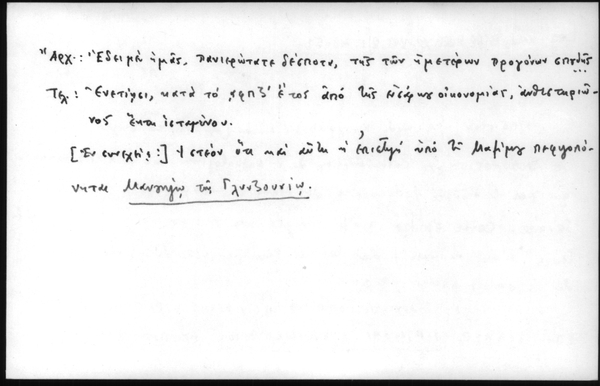 "Ἀρχ.: Ἔδει μὲν ἡμᾶς, πανιερώτατε δέσποτα, τῆς τῶν ἡμετέρων προγόνων σπουδῆς ...
Τελ.: Ἐνετίησι, κατὰ τὸ ͵αφπζ' ἔτος ἀπὸ τῆς ἐνσάρκου οἰκονομίας, ἀνθεστηριῶ-
νος ἕκτῃ ἱσταμένου.
[Ἐν συνεχείᾳ:] Ἰστέον ὅτι καὶ αὕτη ἡ ἐπιστολὴ ὑπὸ τοῦ Μαξίμου πεφιλοπό-
νηται Μανουήλῳ τῷ Γλυνζουνίῳ.